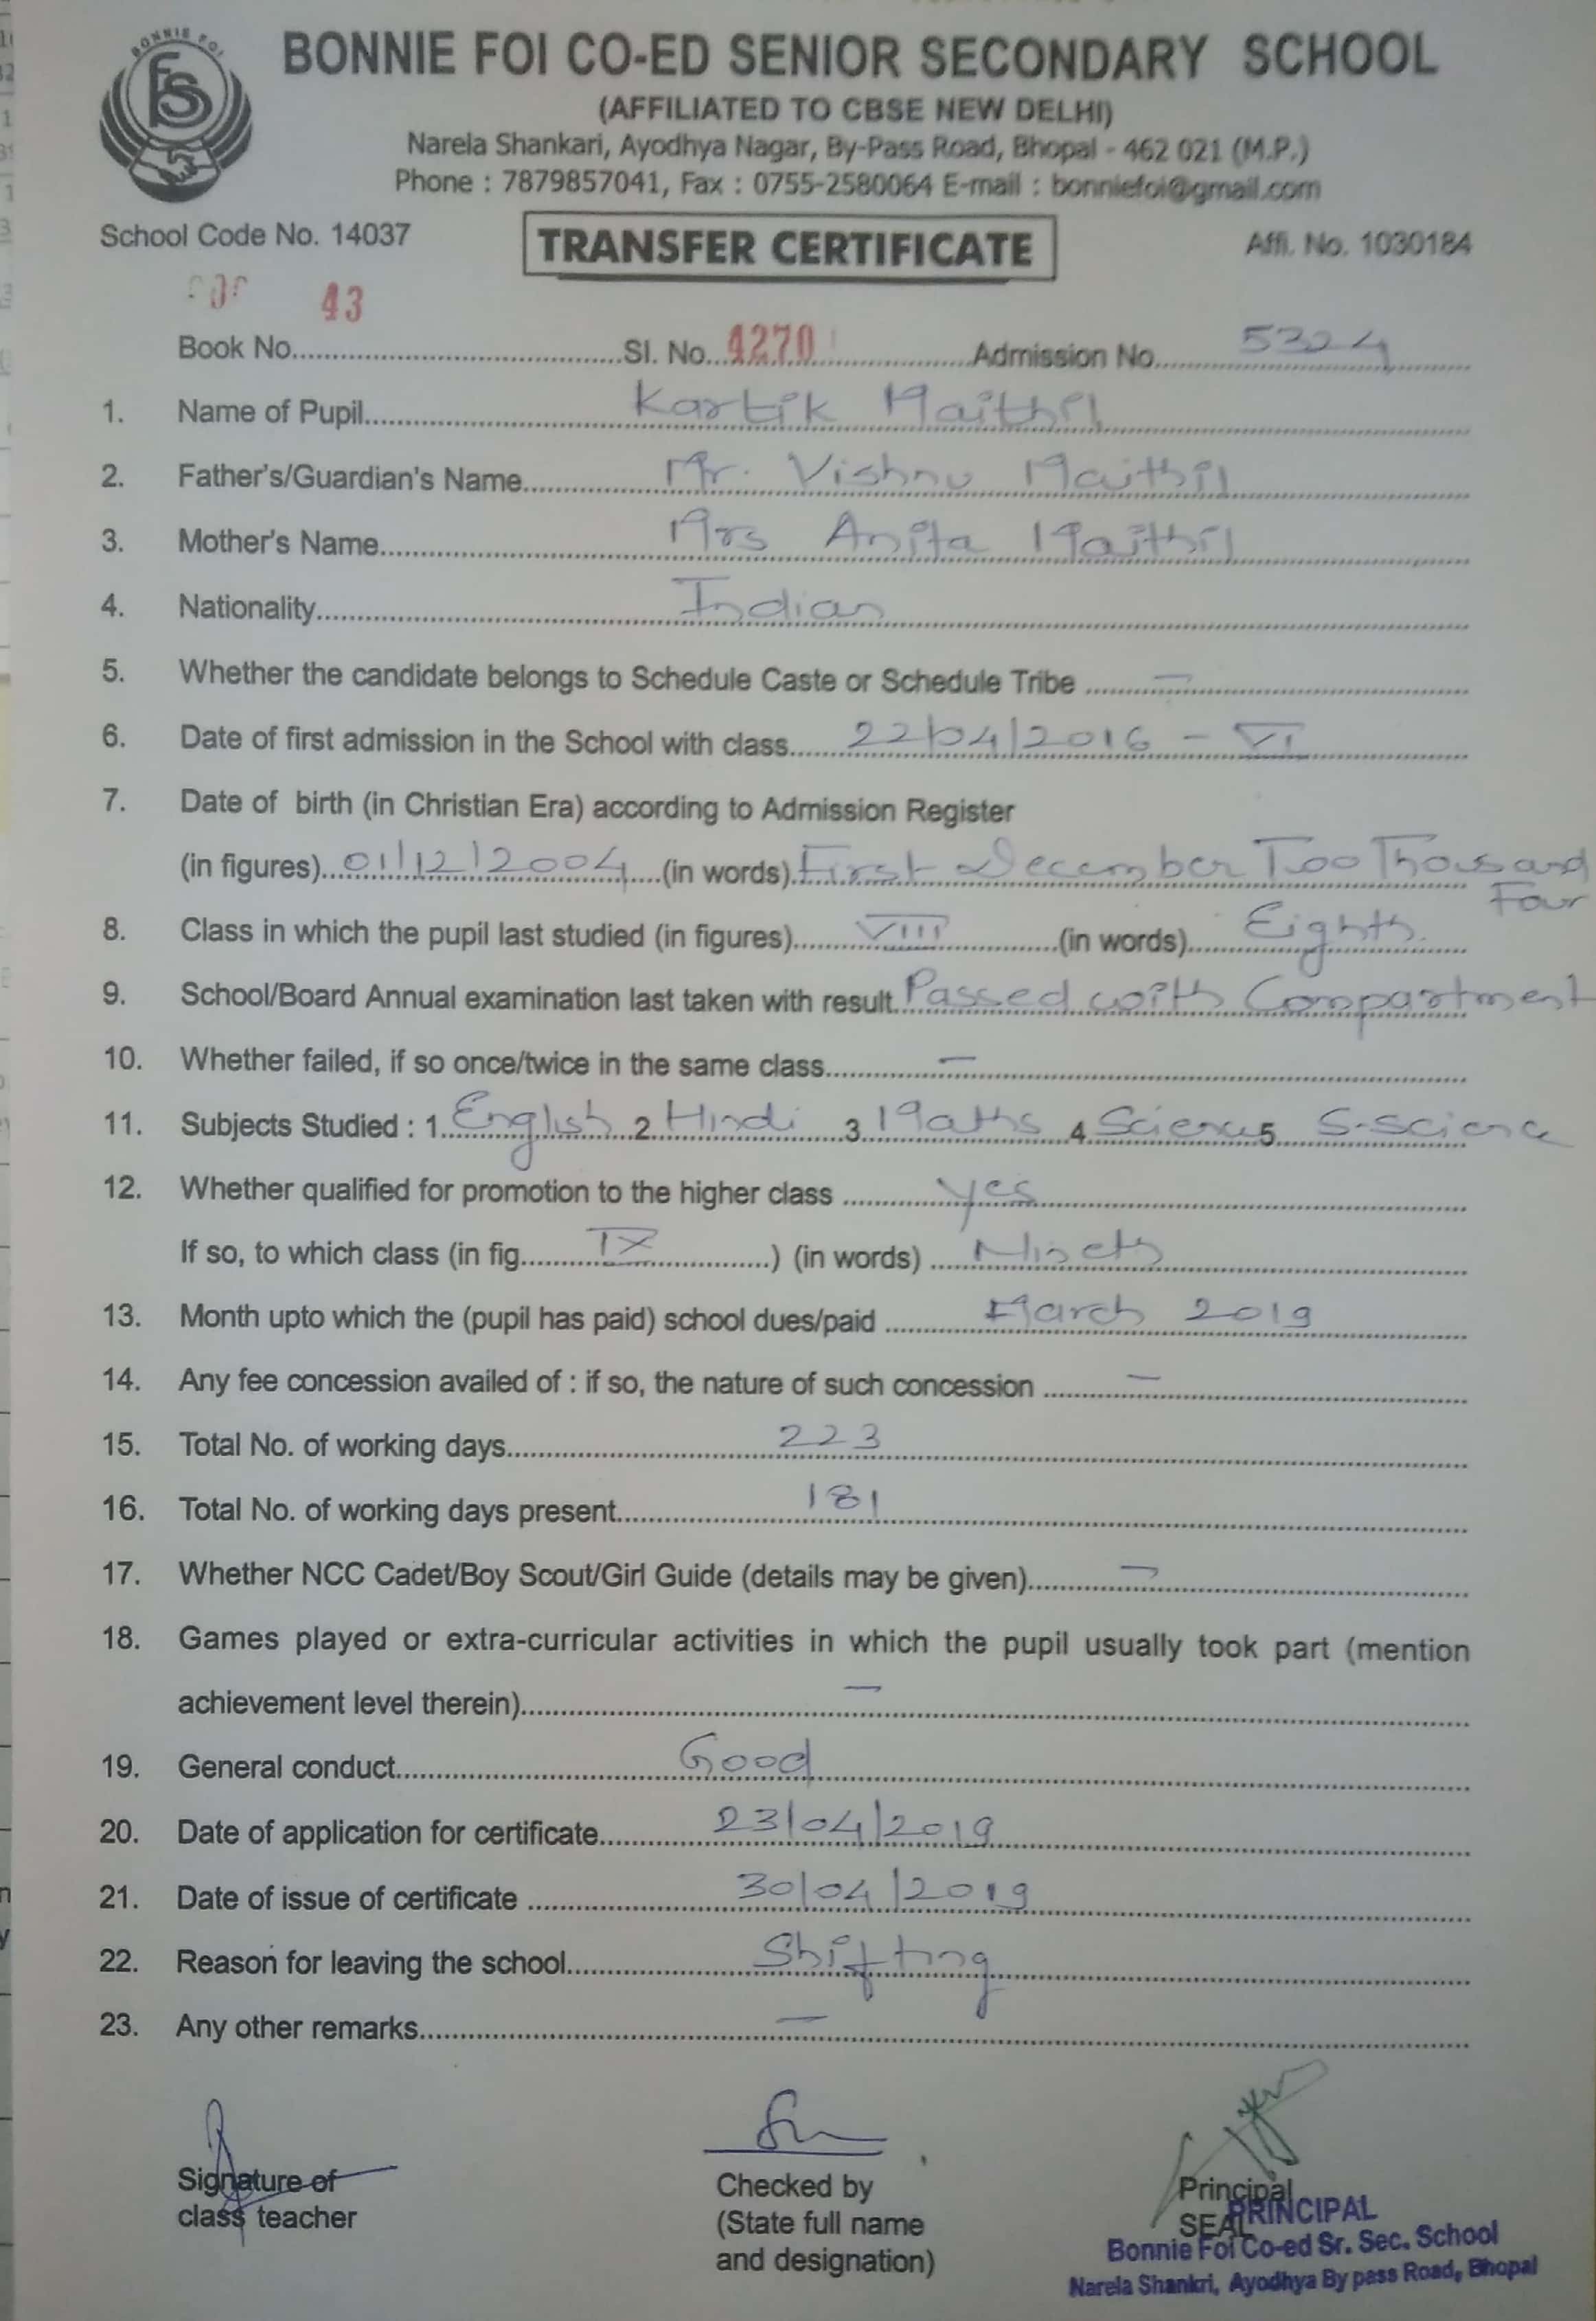 BONNIE FOI
BONNIE FOI CO-ED SENIOR SECONDARY SCHOOL
(AFFILIATED TO CBSE NEW DELHI)
Narela Shankari, Ayodhya Nagar, By-Pass Road, Bhopal - 462 021 (M.P.)
Phone : 7879857041, Fax : 0755-2580064 E-mail : bonniefoi@gmail.com
School Code No. 14037 TRANSFER CERTIFICATE Affi. No. 1030184
Book No. 43 Sl. No. 4270 Admission No. 5324
1. Name of Pupil Kartik Maithil
2. Father's/Guardian's Name Mr. Vishnu Maithil
3. Mother's Name Mrs Anita Maithil
4. Nationality Indian
5. Whether the candidate belongs to Schedule Caste or Schedule Tribe —
6. Date of first admission in the School with class 22/04/2016 - VI
7. Date of birth (in Christian Era) according to Admission Register
(in figures) 01/12/2004 (in words) First December Two Thousand
Four
8. Class in which the pupil last studied (in figures) VIII (in words) Eighth.
9. School/Board Annual examination last taken with result Passed with Compartment
10. Whether failed, if so once/twice in the same class —
11. Subjects Studied : 1. English 2. Hindi 3. Maths 4. Science 5. S-Science
12. Whether qualified for promotion to the higher class yes
If so, to which class (in fig. IX ) (in words) Nineth
13. Month upto which the (pupil has paid) school dues/paid March 2019
14. Any fee concession availed of : if so, the nature of such concession —
15. Total No. of working days 223
16. Total No. of working days present 181
17. Whether NCC Cadet/Boy Scout/Girl Guide (details may be given) —
18. Games played or extra-curricular activities in which the pupil usually took part (mention
achievement level therein) —
19. General conduct Good
20. Date of application for certificate 23/04/2019
21. Date of issue of certificate 30/04/2019
22. Reason for leaving the school Shifting
23. Any other remarks —
Signature of
class teacher
Checked by
(State full name
and designation)
Principal
SEAL
PRINCIPAL
Bonnie Foi Co-ed Sr. Sec. School
Narela Shankri, Ayodhya By pass Road, Bhopal